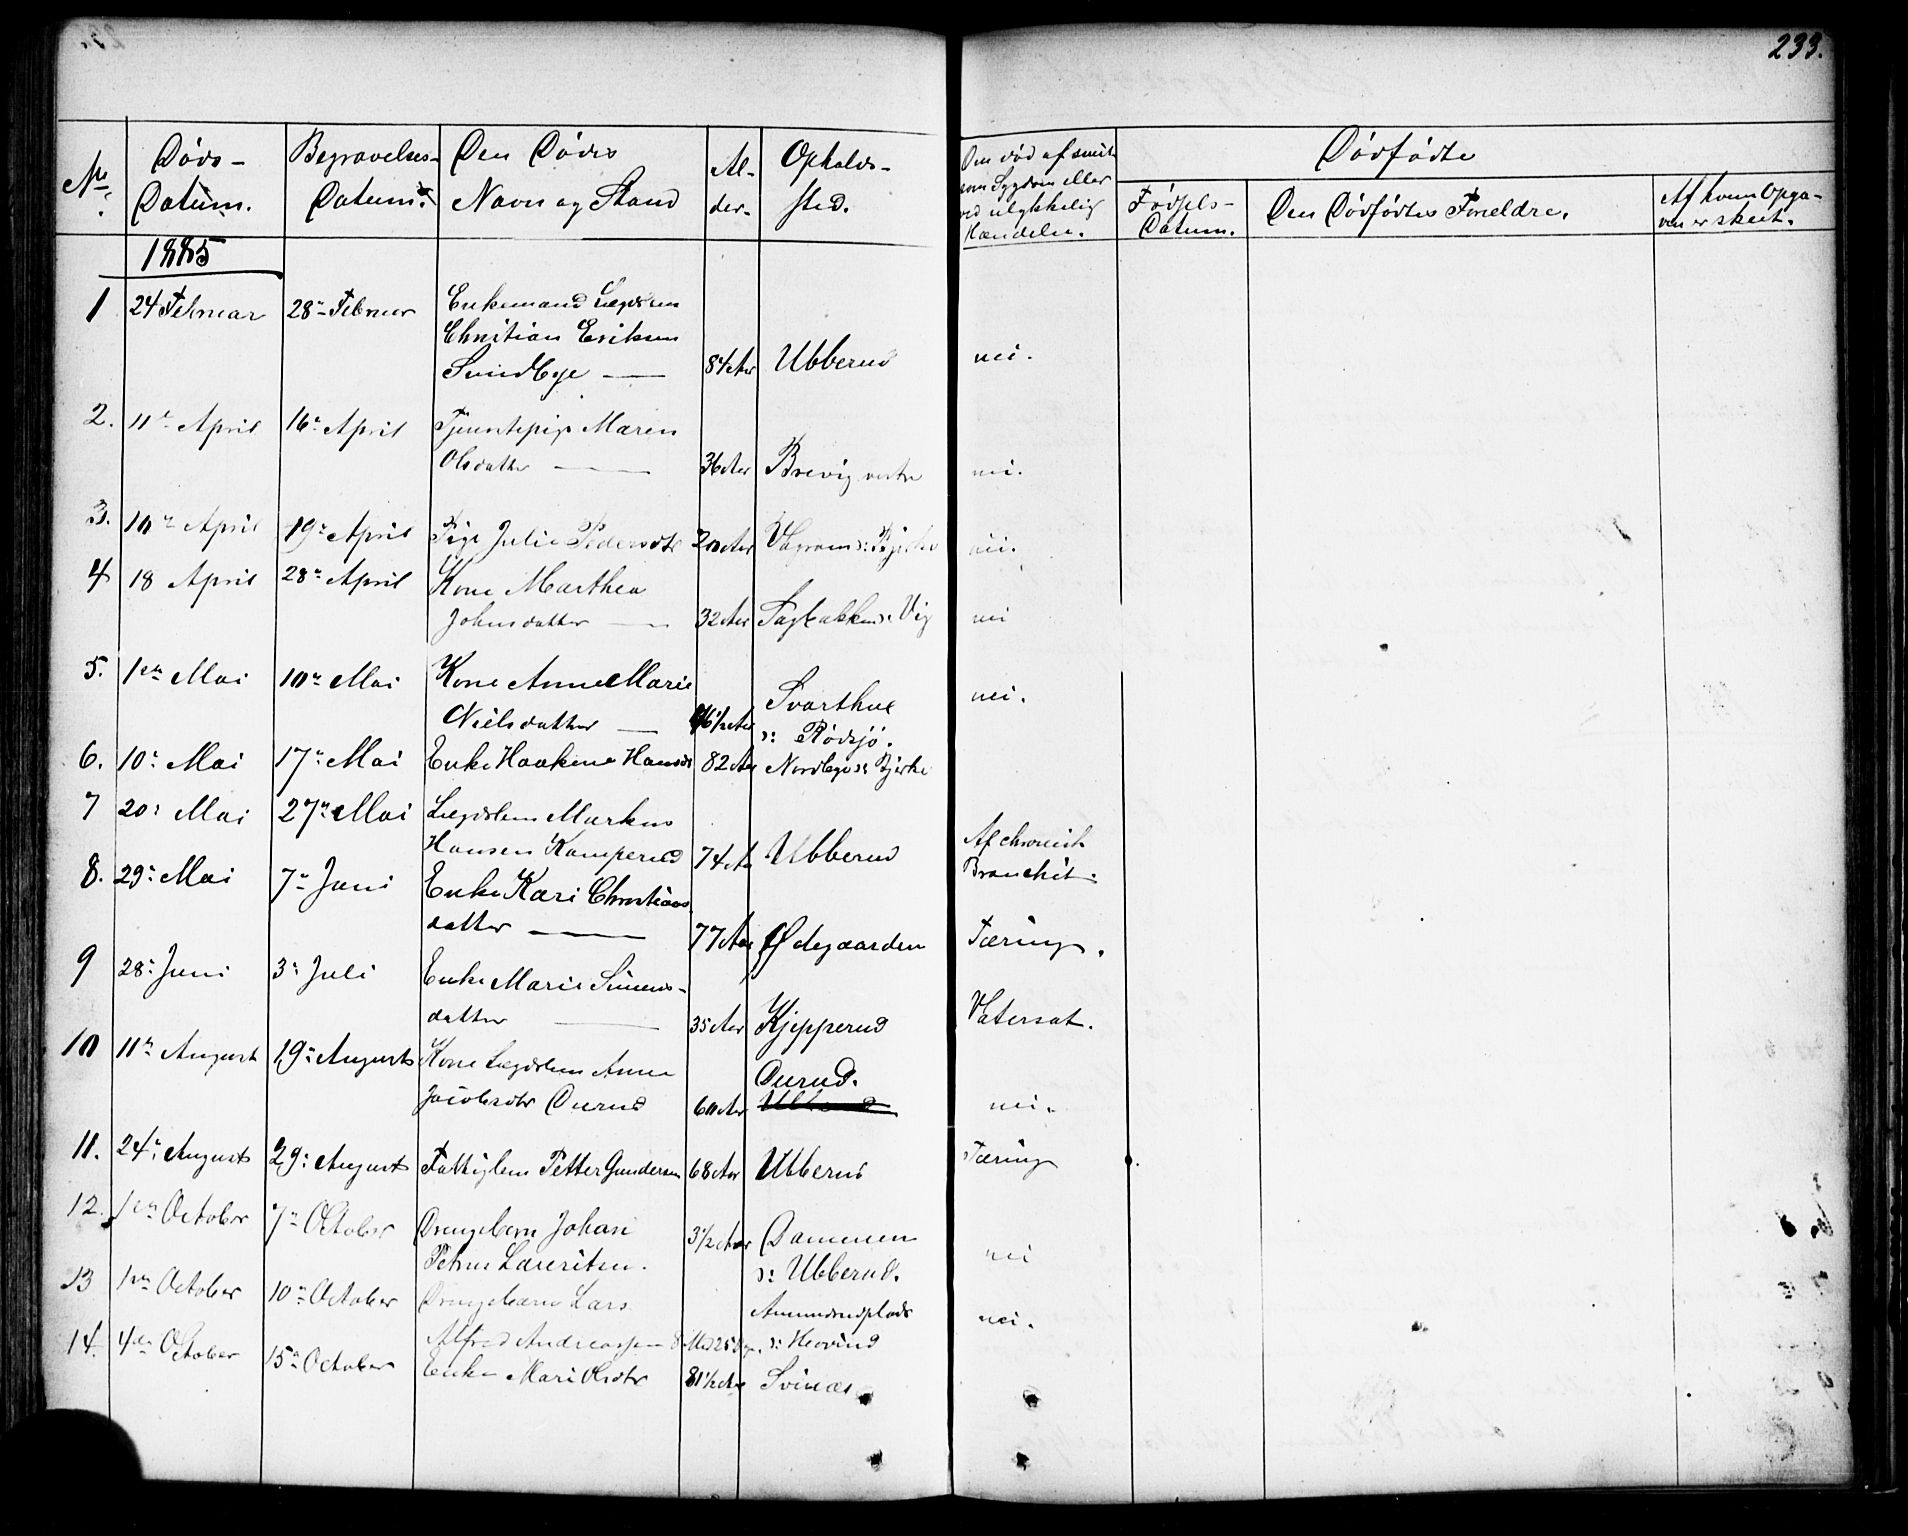 233.
No. Døds-Datum. Begravelses-Datum. Den Dødes Navn og Stand Al-der. Opholds-sted. Den død af smit-som Sygdom eller ved ulykkelig Hændelse. Dødfødte
Fødsels-Datum. Den Dødfødtes Foreldre. Af hvem Opga-ven er skeet.
1885
1 24 Februar 28 Februar Enkemand Lægdslem
Christian Eriksen
Sundbye 84 Aar Ubberud nei.
2. 11 April 16 April Tjenestepige Maren
Olsdatter 36 Aar Brevig vestre nei.
3. 10 April 19 April Pige Julie Pedersdtr 20 Aar Vagram s: Bjerke nei.
4 18 April 28 April Kone Marthea
Johnsdatter 32 Aar Sagbakken s: Vig nei
5. 1ste Mai 10 Mai Kone Anne Marie
Nielsdatter 46 1/2 Aar Svarthul
s: Rødsjø. nei.
6. 10 Mai 17 Mai Enke Haakene Hansd 82 Aar Nordbye s: Bjerke
7 20 Mai 27 Mai Lægdslem Markus
Hansen Kamperud 74 Aar Ubberud Af chronisk
Bronchit.
8. 29 Mai 7 Juni Enke Kari Christians
datter 77 Aar Ødegaarden Tæring.
9 28 Juni 3 Juli Enke Marie Simens-
datter 35 Aar Kjepperud Vatersot.
10 11 August 19 August Kone Lægdslem Anne
Jacobsdtr Ourud 60 Aar Ourud.
nei.
11. 24 August 29 August Fattiglem Petter Gundersen 68 Aar Ubberud Tæring
12. 1ste October 7 October Drengebarn Johan
Petrus Lauritsen. 3 1/2 Aar Dammen
s: Ubberud. nei
13 1ste October 10 October Drengebarn Lars
Alfred Andreassen 8 Md 25 Dge. Amundrudplads
s: Hovind nei.
14. 4de October 15 October Enke Mari Olsdtr 81 1/2 Aar Svinæs